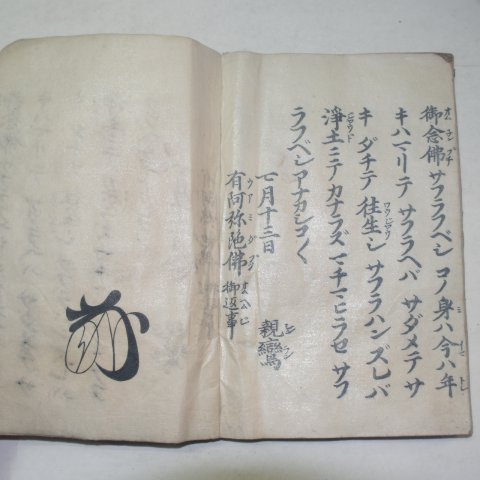 御念佛サフラフベシ コノ身ハ今ハ年
キハマリテ サフラヘバ サダメテサ
キ ダチテ 往生シ サフラハンズレバ
淨土ニテ カナラズ マチマヒラセ サフ
ラフベシ アナカシコ〳〵
七月十三日
親鸞
有阿弥陀佛 御返事